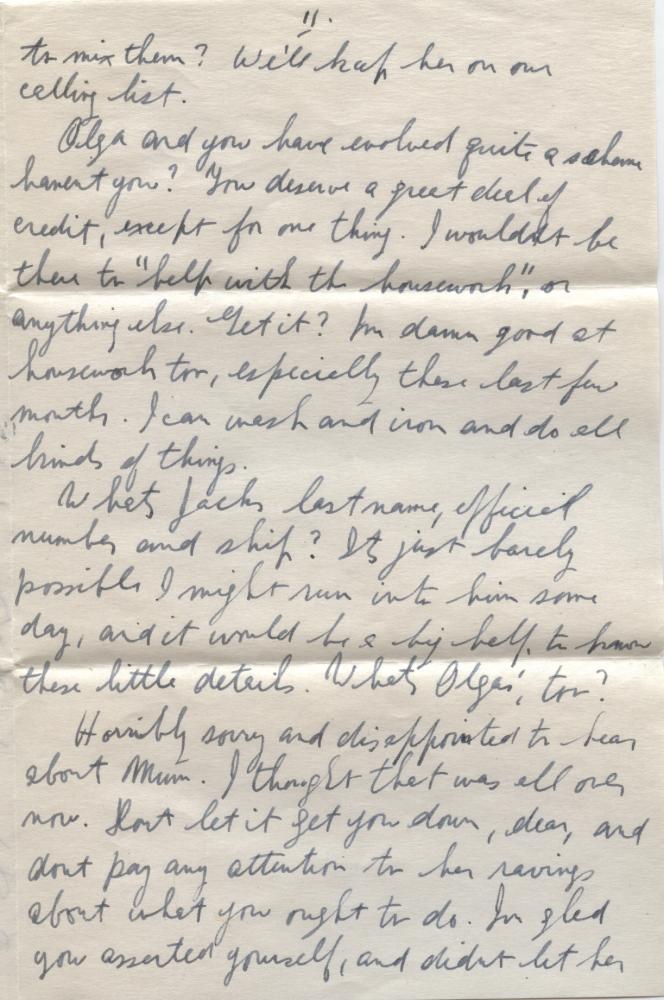 11.
to mix them? We'll keep her on our
calling list.
Olga and you have evolved quite a scheme
havent you? You deserve a great deal of
credit, except for one thing. I wouldnt be
there to "help with the housework", or
anything else. Get it? Im damn good at
housework too, especially these last few
months. I can wash and iron and do all
kinds of things.
Whats Jacks last name, official
number and ship? Its just barely
possible I might run into him some
day, and it would be a big help to know
these little details. Whats Olgas', too?
Horribly sorry and disappointed to hear
about Mum. I thought that was all over
now. Dont let it get you down, dear, and
dont pay any attention to her ravings
about what you ought to do. Im glad
you asserted yourself, and didnt let her